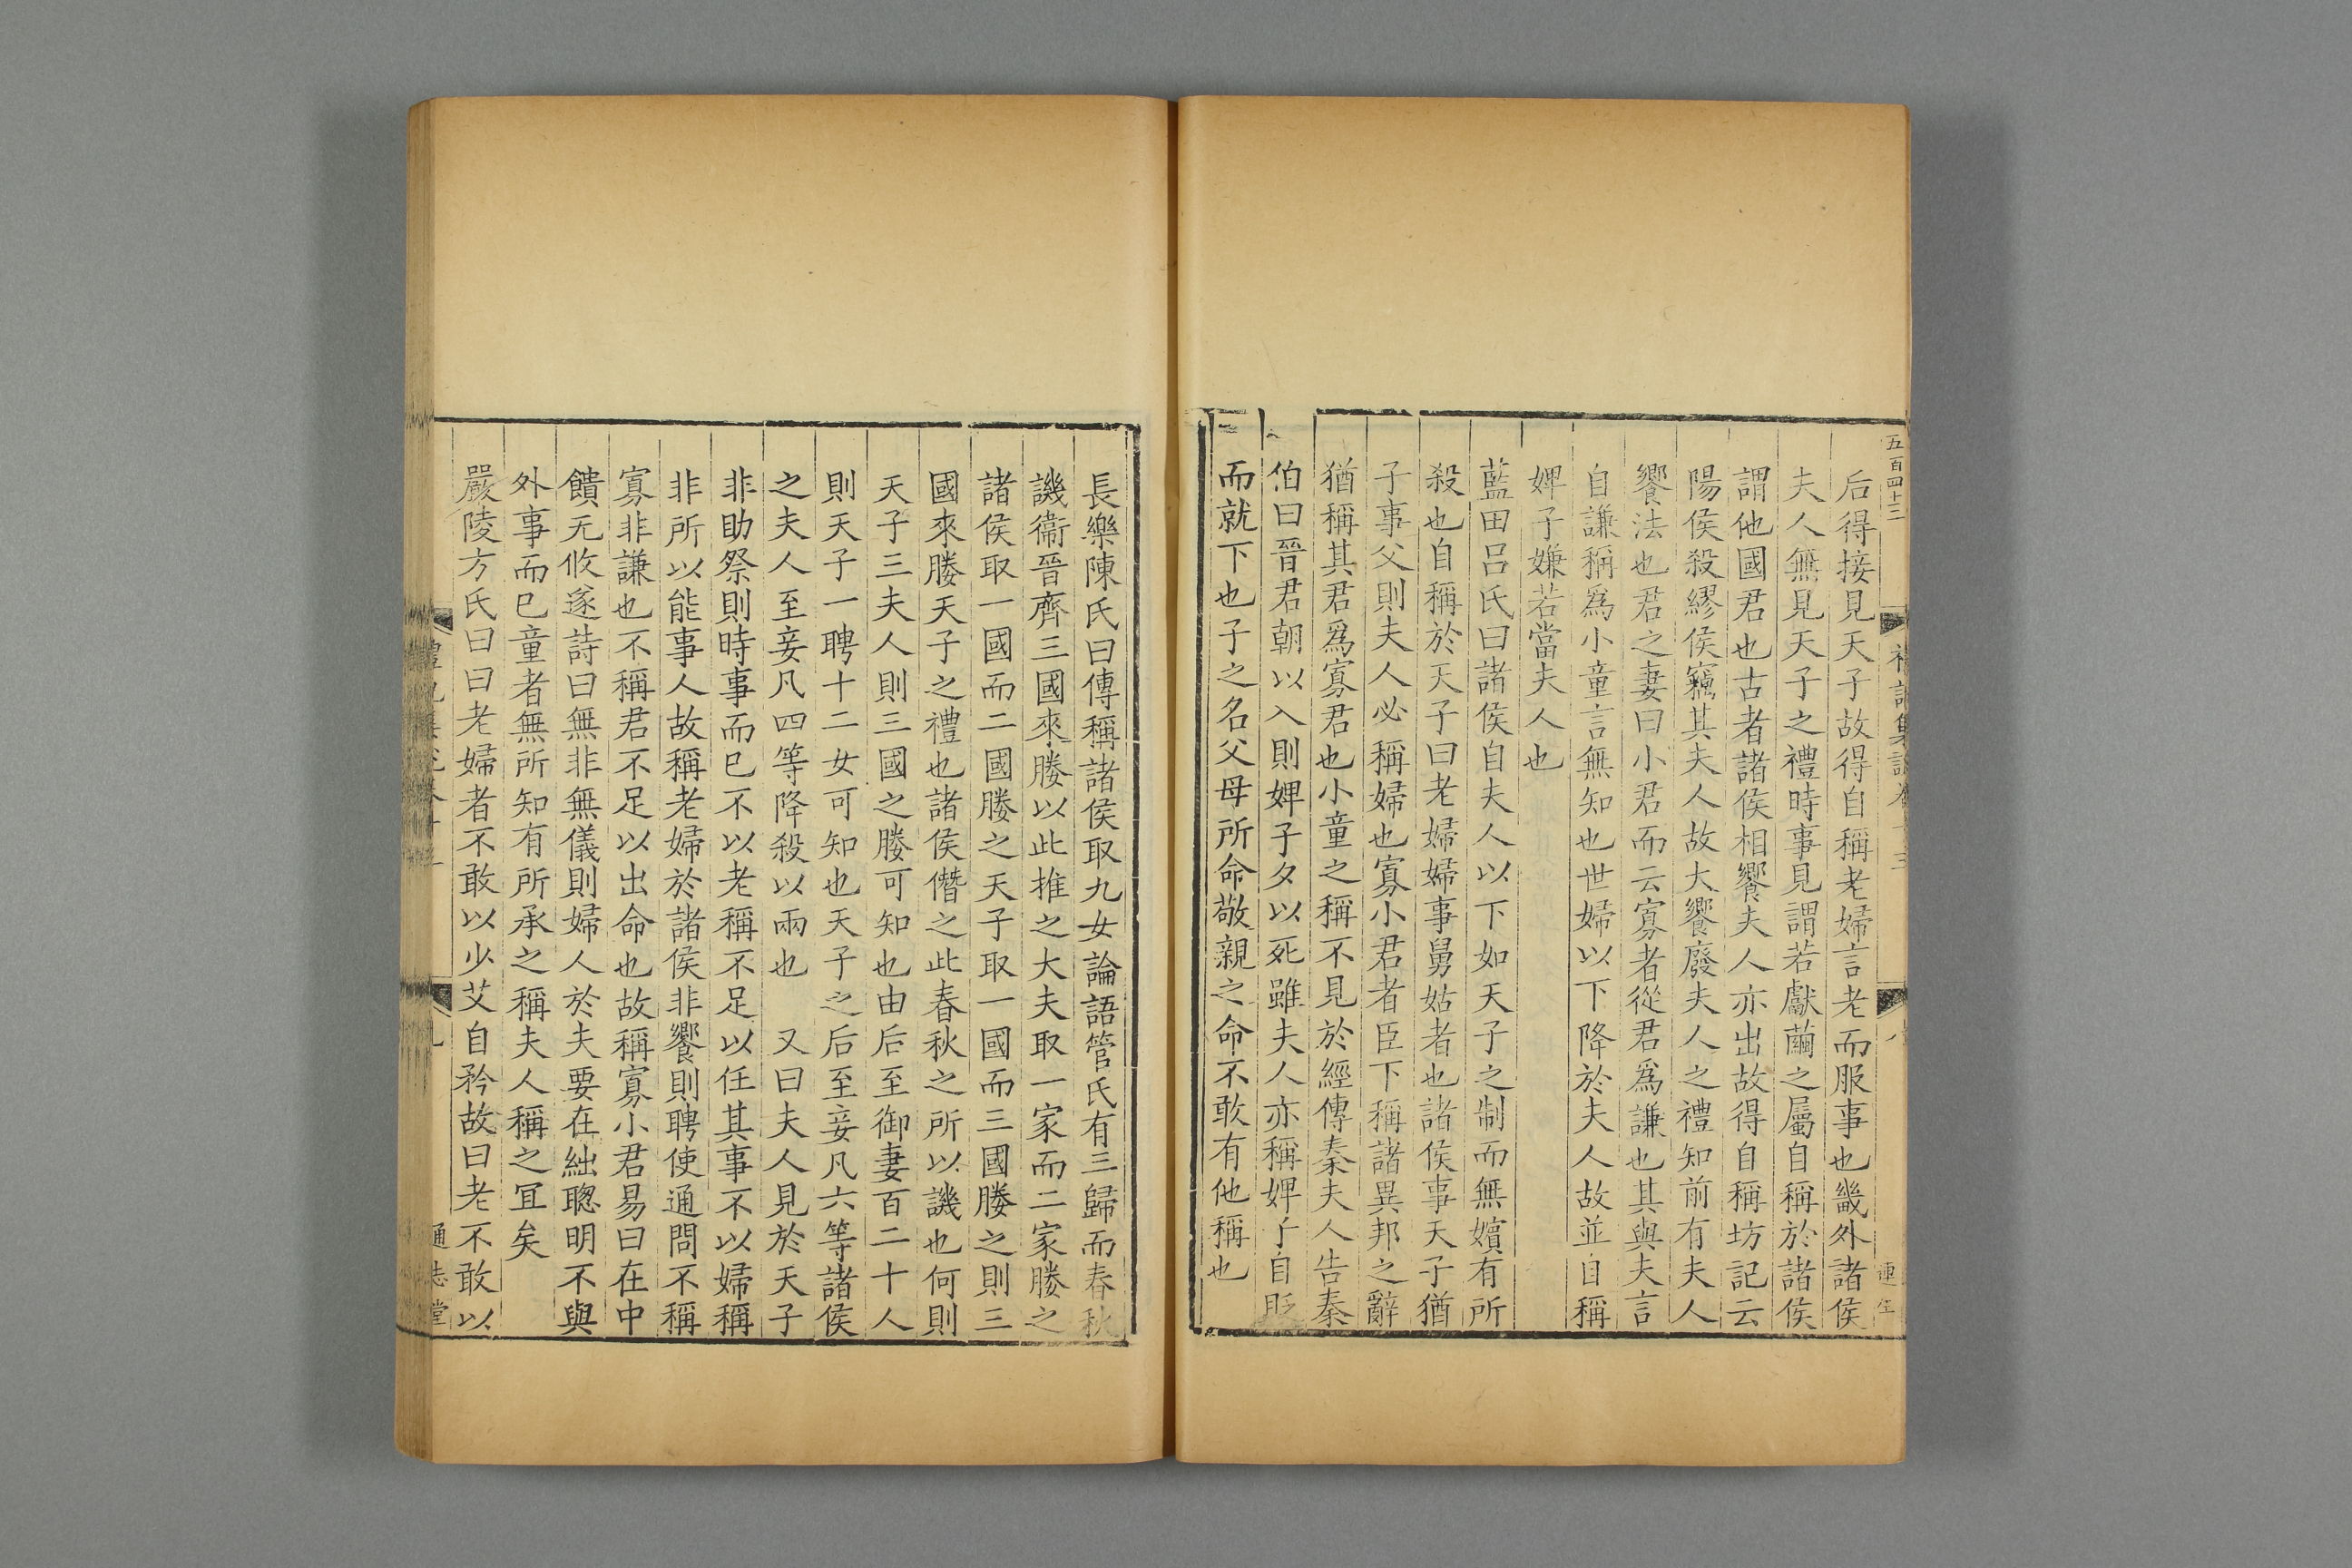 五百四十三
后得接見天子故得自稱老婦言老而服事也畿外諸侯
夫人無見天子之禮時事見謂若獻繭之屬自稱於諸侯
謂他國君也古者諸侯相饗夫人亦出故得自稱坊記云
陽侯殺繆侯竊其夫人故大饗廢夫人之禮知前有夫人
饗法也君之妻曰小君而云寡者從君爲謙也其與夫言
自謙稱爲小童言無知也世婦以下降於夫人故並自稱
婢子嫌若當夫人也
藍田呂氏曰諸侯自夫人以下如天子之制而無嬪有所
殺也自稱於天子曰老婦婦事舅姑者也諸侯事天子猶
子事父則夫人必稱婦也寡小君者臣下稱諸異邦之辭
猶稱其君爲寡君也小童之稱不見於經傳秦夫人告秦
伯曰晉君朝以入則婢子夕以死雖夫人亦稱婢子自貶
而就下也子之名父母所命敬親之命不敢有他稱也
長樂陳氏曰傳稱諸侯取九女論語管氏有三歸而春秋
譏衞晉齊三國來媵以此推之大夫取一家而二家媵之
諸侯取一國而二國媵之天子取一國而三國媵之則三
國來媵天子之禮也諸侯僭之此春秋之所以譏也何則
天子三夫人則三國之媵可知也由后至御妻百二十人
則天子一聘十二女可知也天子之后至妾凡六等諸侯
之夫人至妾凡四等降殺以兩也 又曰夫人見於天子
非助祭則時事而已不以老稱不足以任其事不以婦稱
非所以能事人故稱老婦於諸侯非饗則聘使通問不稱
寡非謙也不稱君不足以出命也故稱寡小君易曰在中
饋无攸遂詩曰無非無儀則婦人於夫要在絀聰明不與
外事而已童者無所知有所承之稱夫人稱之冝矣
嚴陵方氏曰曰老婦者不敢以少艾自矜故曰老不敢以
通志堂